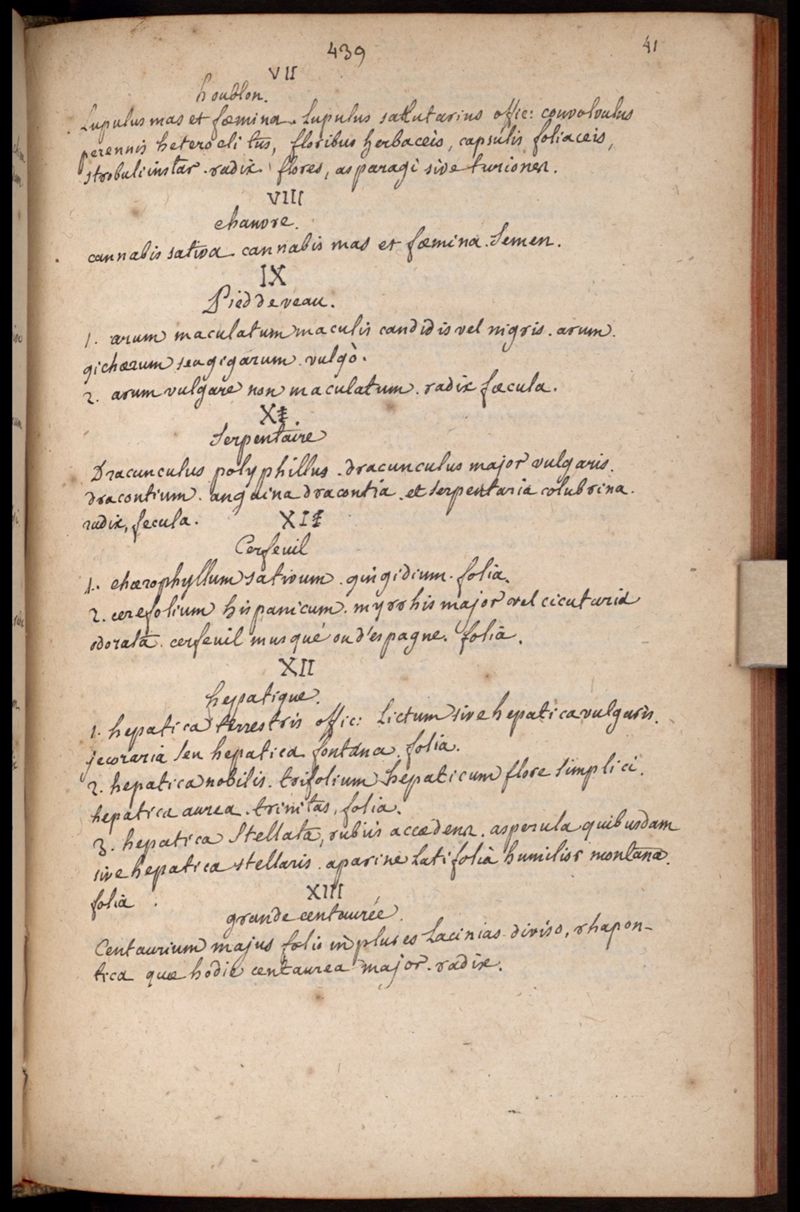 439
41
VII
houblon.
Lupulus mas et fœmina. Lupulus salutarius offic: convolvulus
perennis heteroclitus, floribus herbaceis, capsulis foliaceis,
strobuli instar. radix. flores, asparagi sive turiones.
VIII
chanvre.
cannabis sativa. cannabis mas et fœmina. Semen.
IX
Pied de veau.
1. arum maculatum maculis candidis vel nigris. arum.
gichærum seu gigarum. vulgò.
2. arum vulgare non maculatum. radix fæcula.
X.
Serpentaire
Dracunculus polyphillus. dracunculus major vulgaris.
dracontium. anguina dracontia. et serpentaria colubrina.
radix, fecula.
XI
Cerfeuil
1. chærophyllum sativum. gingidium. folia.
2. cerefolium hispanicum. myrrhis major vel cicutaria
odorata. cerfeuil musqué ou d'espagne. folia.
XII
hepatique.
1. hepatica terrestris offic: Lictum sive hepatica vulgaris.
jecoraria seu hepatica fontana. folia.
2. hepatica nobilis. trifolium hepaticum flore simplici.
hepatica aurea. trinitas, folia.
3. hepatica Stellata, rubiis accedens. asperula quibusdam
sive hepatica stellaris. aparine latifolia humilior montana.
folia.
XIII
grande centaurée.
Centaurium majus folio in plures Lacinias diviso, rhapon-
tica quæ hodie centaurea major. radix.